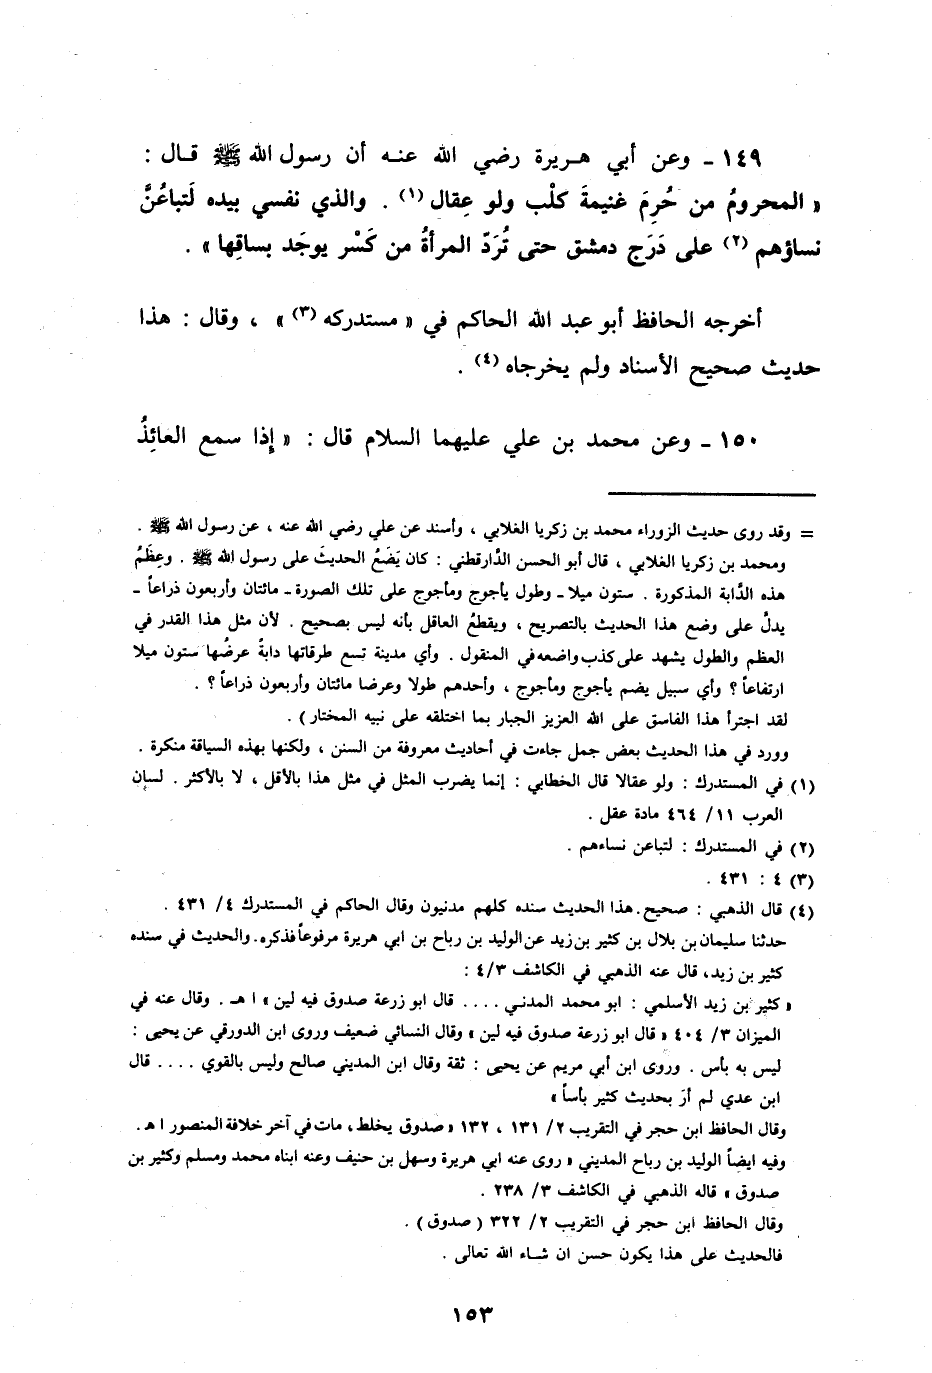 ١٤٩ ـ وعن أبي هـريرة رضي الله عنـه أن رسول الله ﷺ قـال :
« المحرومُ من حُرِمَ غنيمةَ كلْب ولو عِقال (١) . والذي نفسي بيده لَتباعُنَّ
نساؤهم (٢) على دَرَج دمشق حتى تُرَدّ المرأةُ من كَسْر يوجَد بساقِها » .
أخرجه الحافظ أبو عبد الله الحاكم في « مستدركه (٣) » ، وقال : هذا
حديث صحيح الأسناد ولم يخرجاه (٤) .
١٥٠ ـ وعن محمد بن علي عليهما السلام قال : « إِذا سمع العائِذُ
= وقد روى حديث الزوراء محمد بن زكريا الغلابي ، وأسند عن علي رضي الله عنه ، عن رسول الله ﷺ .
ومحمد بن زكريا الغلابي ، قال أبو الحسن الدَّارقطني : كان يَضَعُ الحديثَ على رسول الله ﷺ . وعِظَمُ
هذه الدَّابة المذكورة . ستون ميلا ـ وطول يأجوج ومأجوج على تلك الصورة ـ مائتان وأربعون ذراعاً ـ
يدلُّ على وضع هذا الحديث بالتصريح ، ويقطعُ العاقل بأنه ليس بصحيح . لأن مثل هذا القدر في
العظم والطول يشهد على كذب واضعه في المنقول . وأي مدينة تسع طرقاتها دابةً عرضُها ستون ميلا
ارتفاعاً ؟ وأي سبيل يضم يأجوج ومأجوج ، وأحدهم طولا وعرضا مائتان وأربعون ذراعاً ؟ .
لقد اجترأ هذا الفاسق على الله العزيز الجبار بما اختلقه على نبيه المختار ) .
وورد في هذا الحديث بعض جمل جاءت في أحاديث معروفة من السنن ، ولكنها بهذه السياقة منكرة .
(١) في المستدرك : ولو عقالا قال الخطابي : إنما يضرب المثل في مثل هذا بالأقل ، لا بالأكثر . لسان
العرب ١١ / ٤٦٤ مادة عقل .
(٢) في المستدرك : لتباعن نساءهم .
(٣) ٤ : ٤٣١ .
(٤) قال الذهبي : صحيح . هذا الحديث سنده كلهم مدنيون وقال الحاكم في المستدرك ٤ / ٤٣١ .
حدثنا سليمان بن بلال بن كثير بن زيد عن الوليد بن رباح بن ابي هريرة مرفوعاً فذكره . والحديث في سنده
كثير بن زيد ، قال عنه الذهبي في الكاشف ٣ / ٤ :
« كثير بن زيد الأسلمي : ابو محمد المدني .... قال ابو زرعة صدوق فيه لين » ا هـ . وقال عنه في
الميزان ٣ / ٤٠٤ « قال ابو زرعة صدوق فيه لين » وقال النسائي ضعيف وروى ابن الدورقي عن يحيى :
ليس به بأس . وروى ابن أبي مريم عن يحيى : ثقة وقال ابن المديني صالح وليس بالقوي .... قال
ابن عدي لم أرَ بحديث كثير بأساً »
وقال الحافظ ابن حجر في التقريب ٢ / ١٣١ ، ١٣٢ « صدوق يخلط ، مات في آخر خلافة المنصور ا هـ .
وفيه ايضاً الوليد بن رباح المديني « روى عنه ابي هريرة وسهل بن حنيف وعنه ابناه محمد ومسلم وكثير بن
صدوق » قاله الذهبي في الكاشف ٣ / ٢٣٨ .
وقال الحافظ ابن حجر في التقريب ٢ / ٣٢٢ ( صدوق ) .
فالحديث على هذا يكون حسن ان شاء الله تعالى .
١٥٣